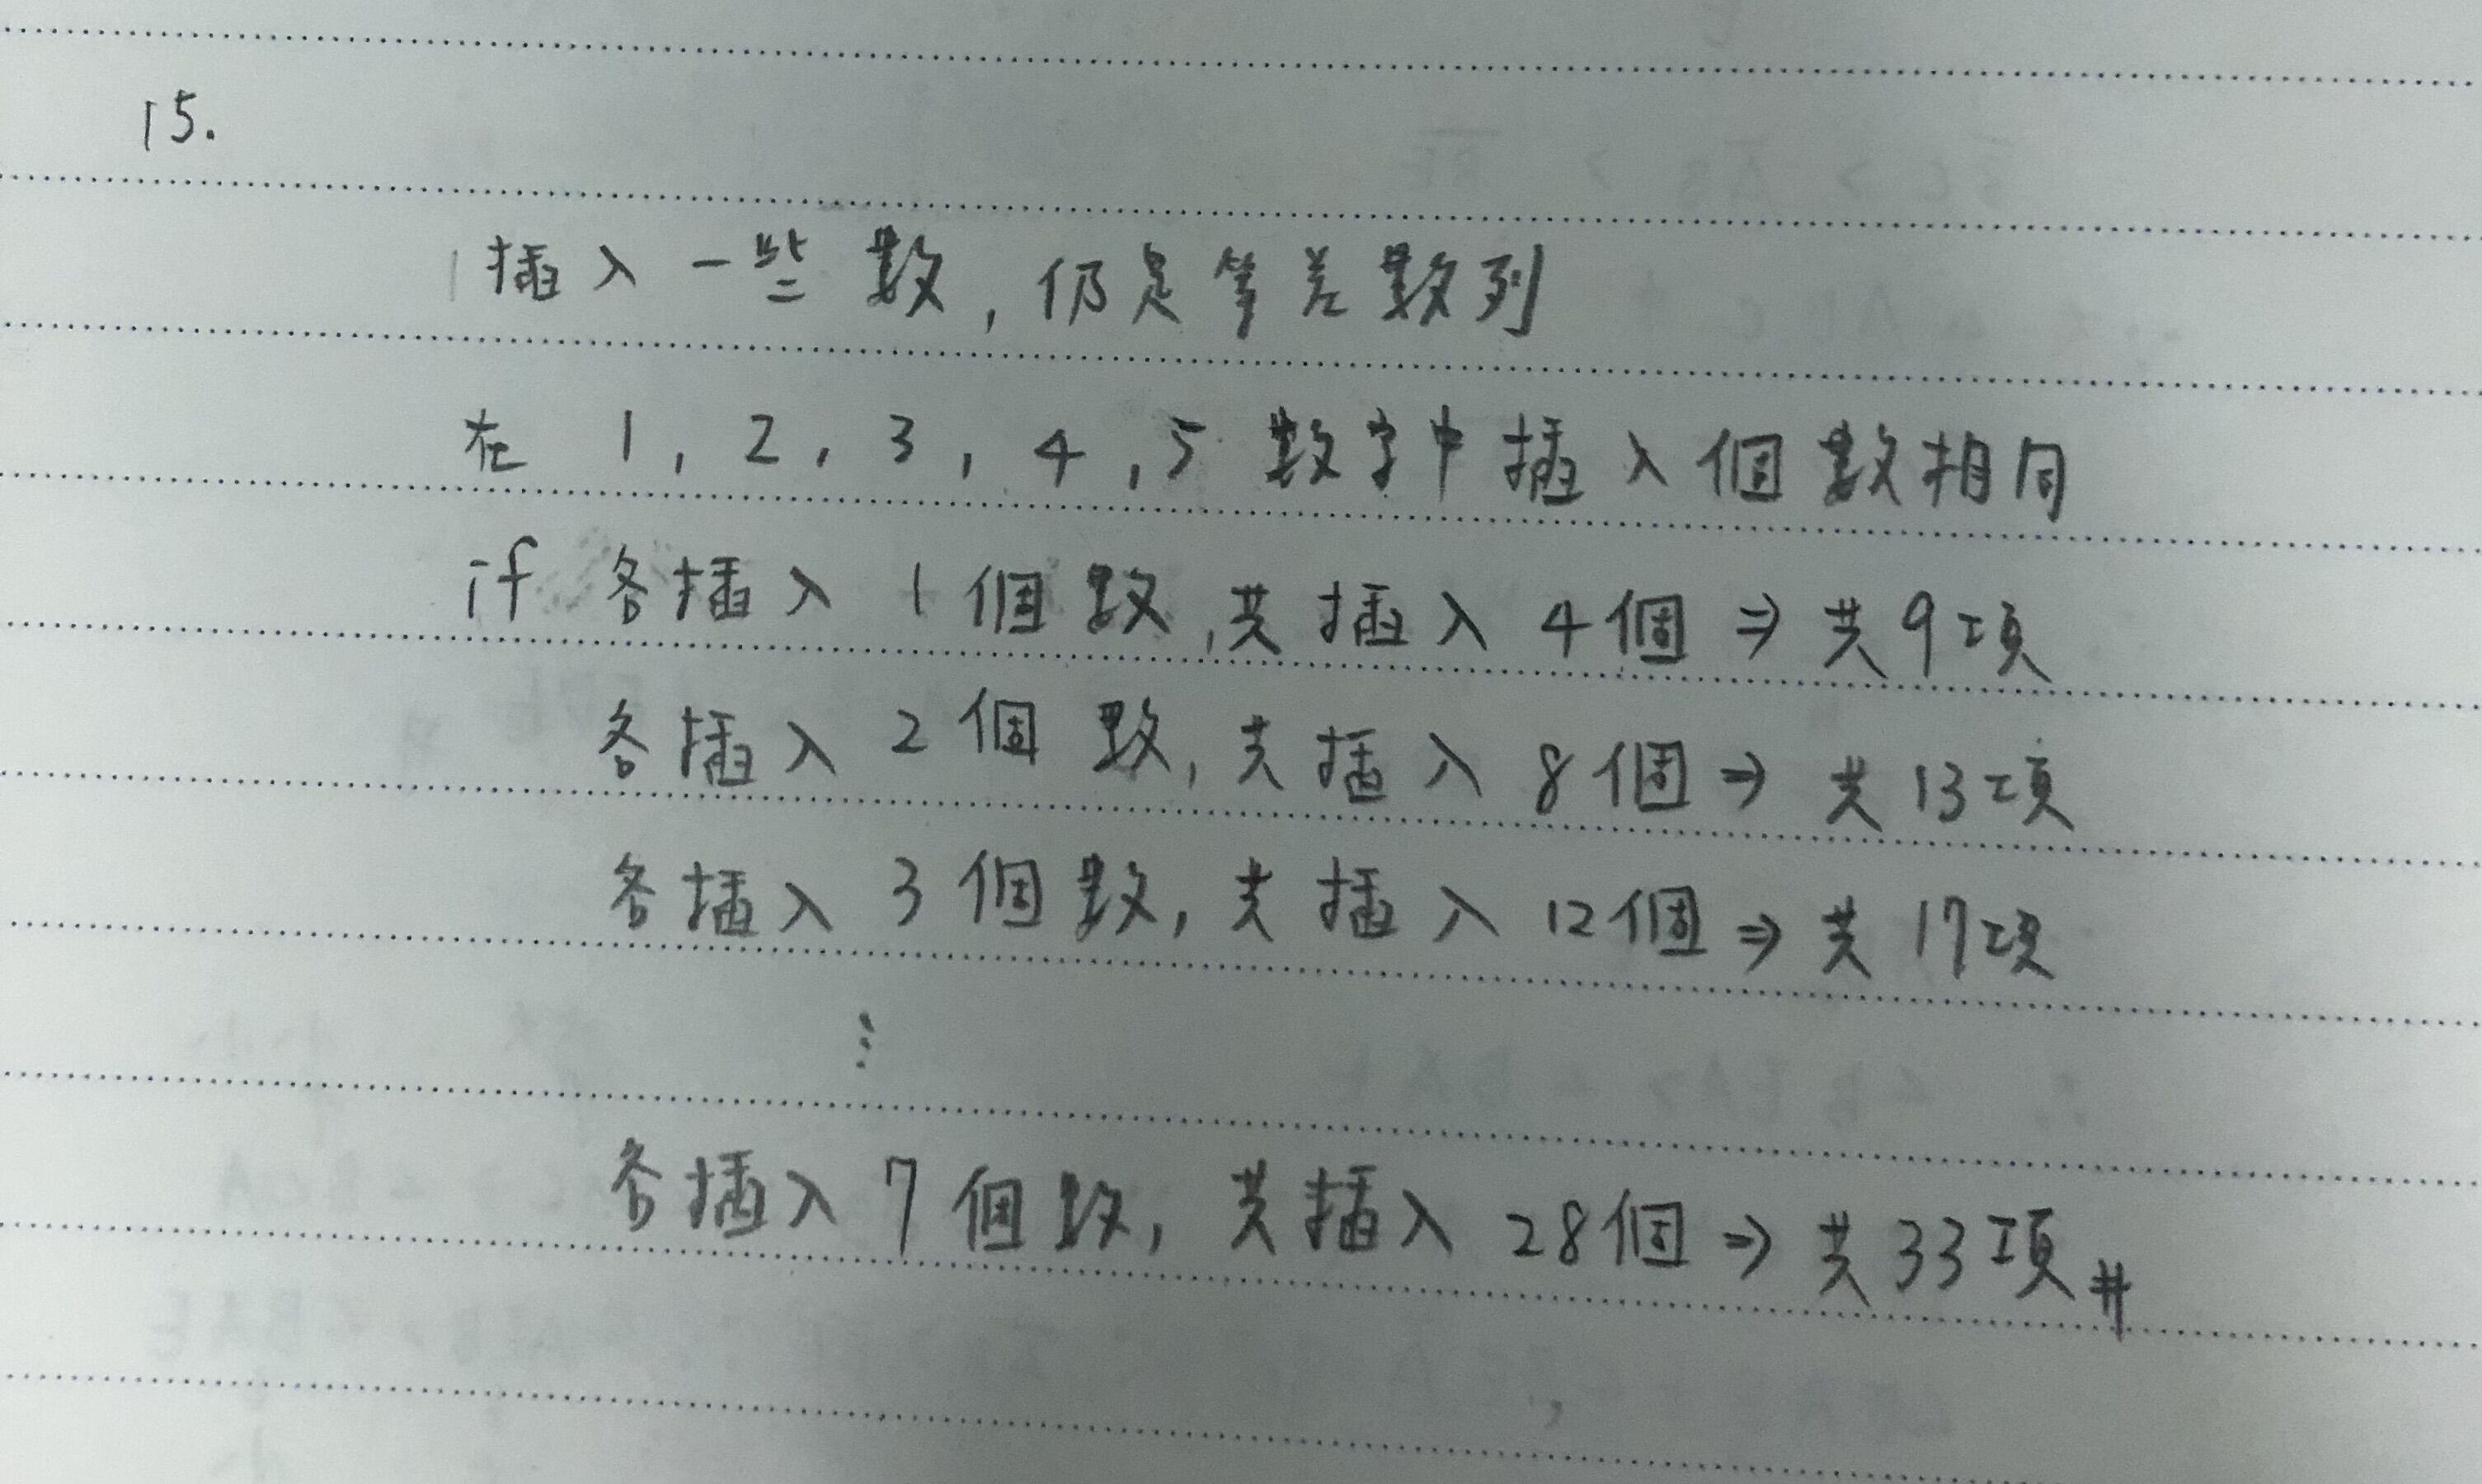 15.
插入一些數,仍是等差數列
在 1, 2, 3, 4, 5 數字中插入個數相同
if 各插入 1 個數,共插入 4個 ⇒ 共9項
各插入 2 個 數,共插入 8個 ⇒ 共 13項
各插入 3 個數,共插入 12個 ⇒ 共 17項
⋮
各插入 7 個數,共插入 28個 ⇒ 共33項 #